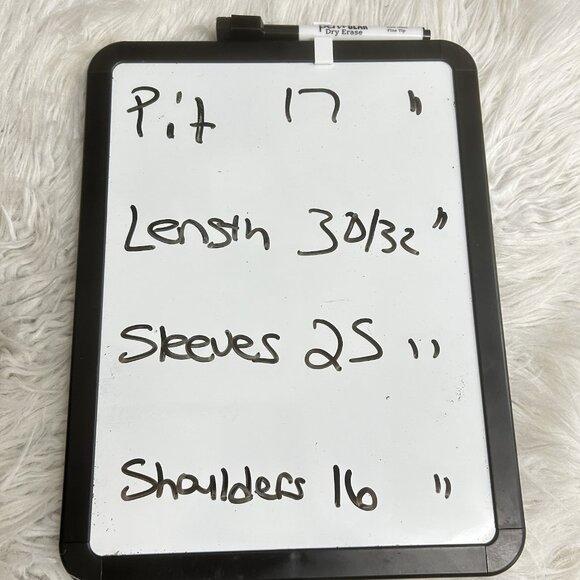 Dry Erase
Fine Tip
Pit 17 "
Length 30/32 "
Sleeves 25 "
Shoulders 16 "